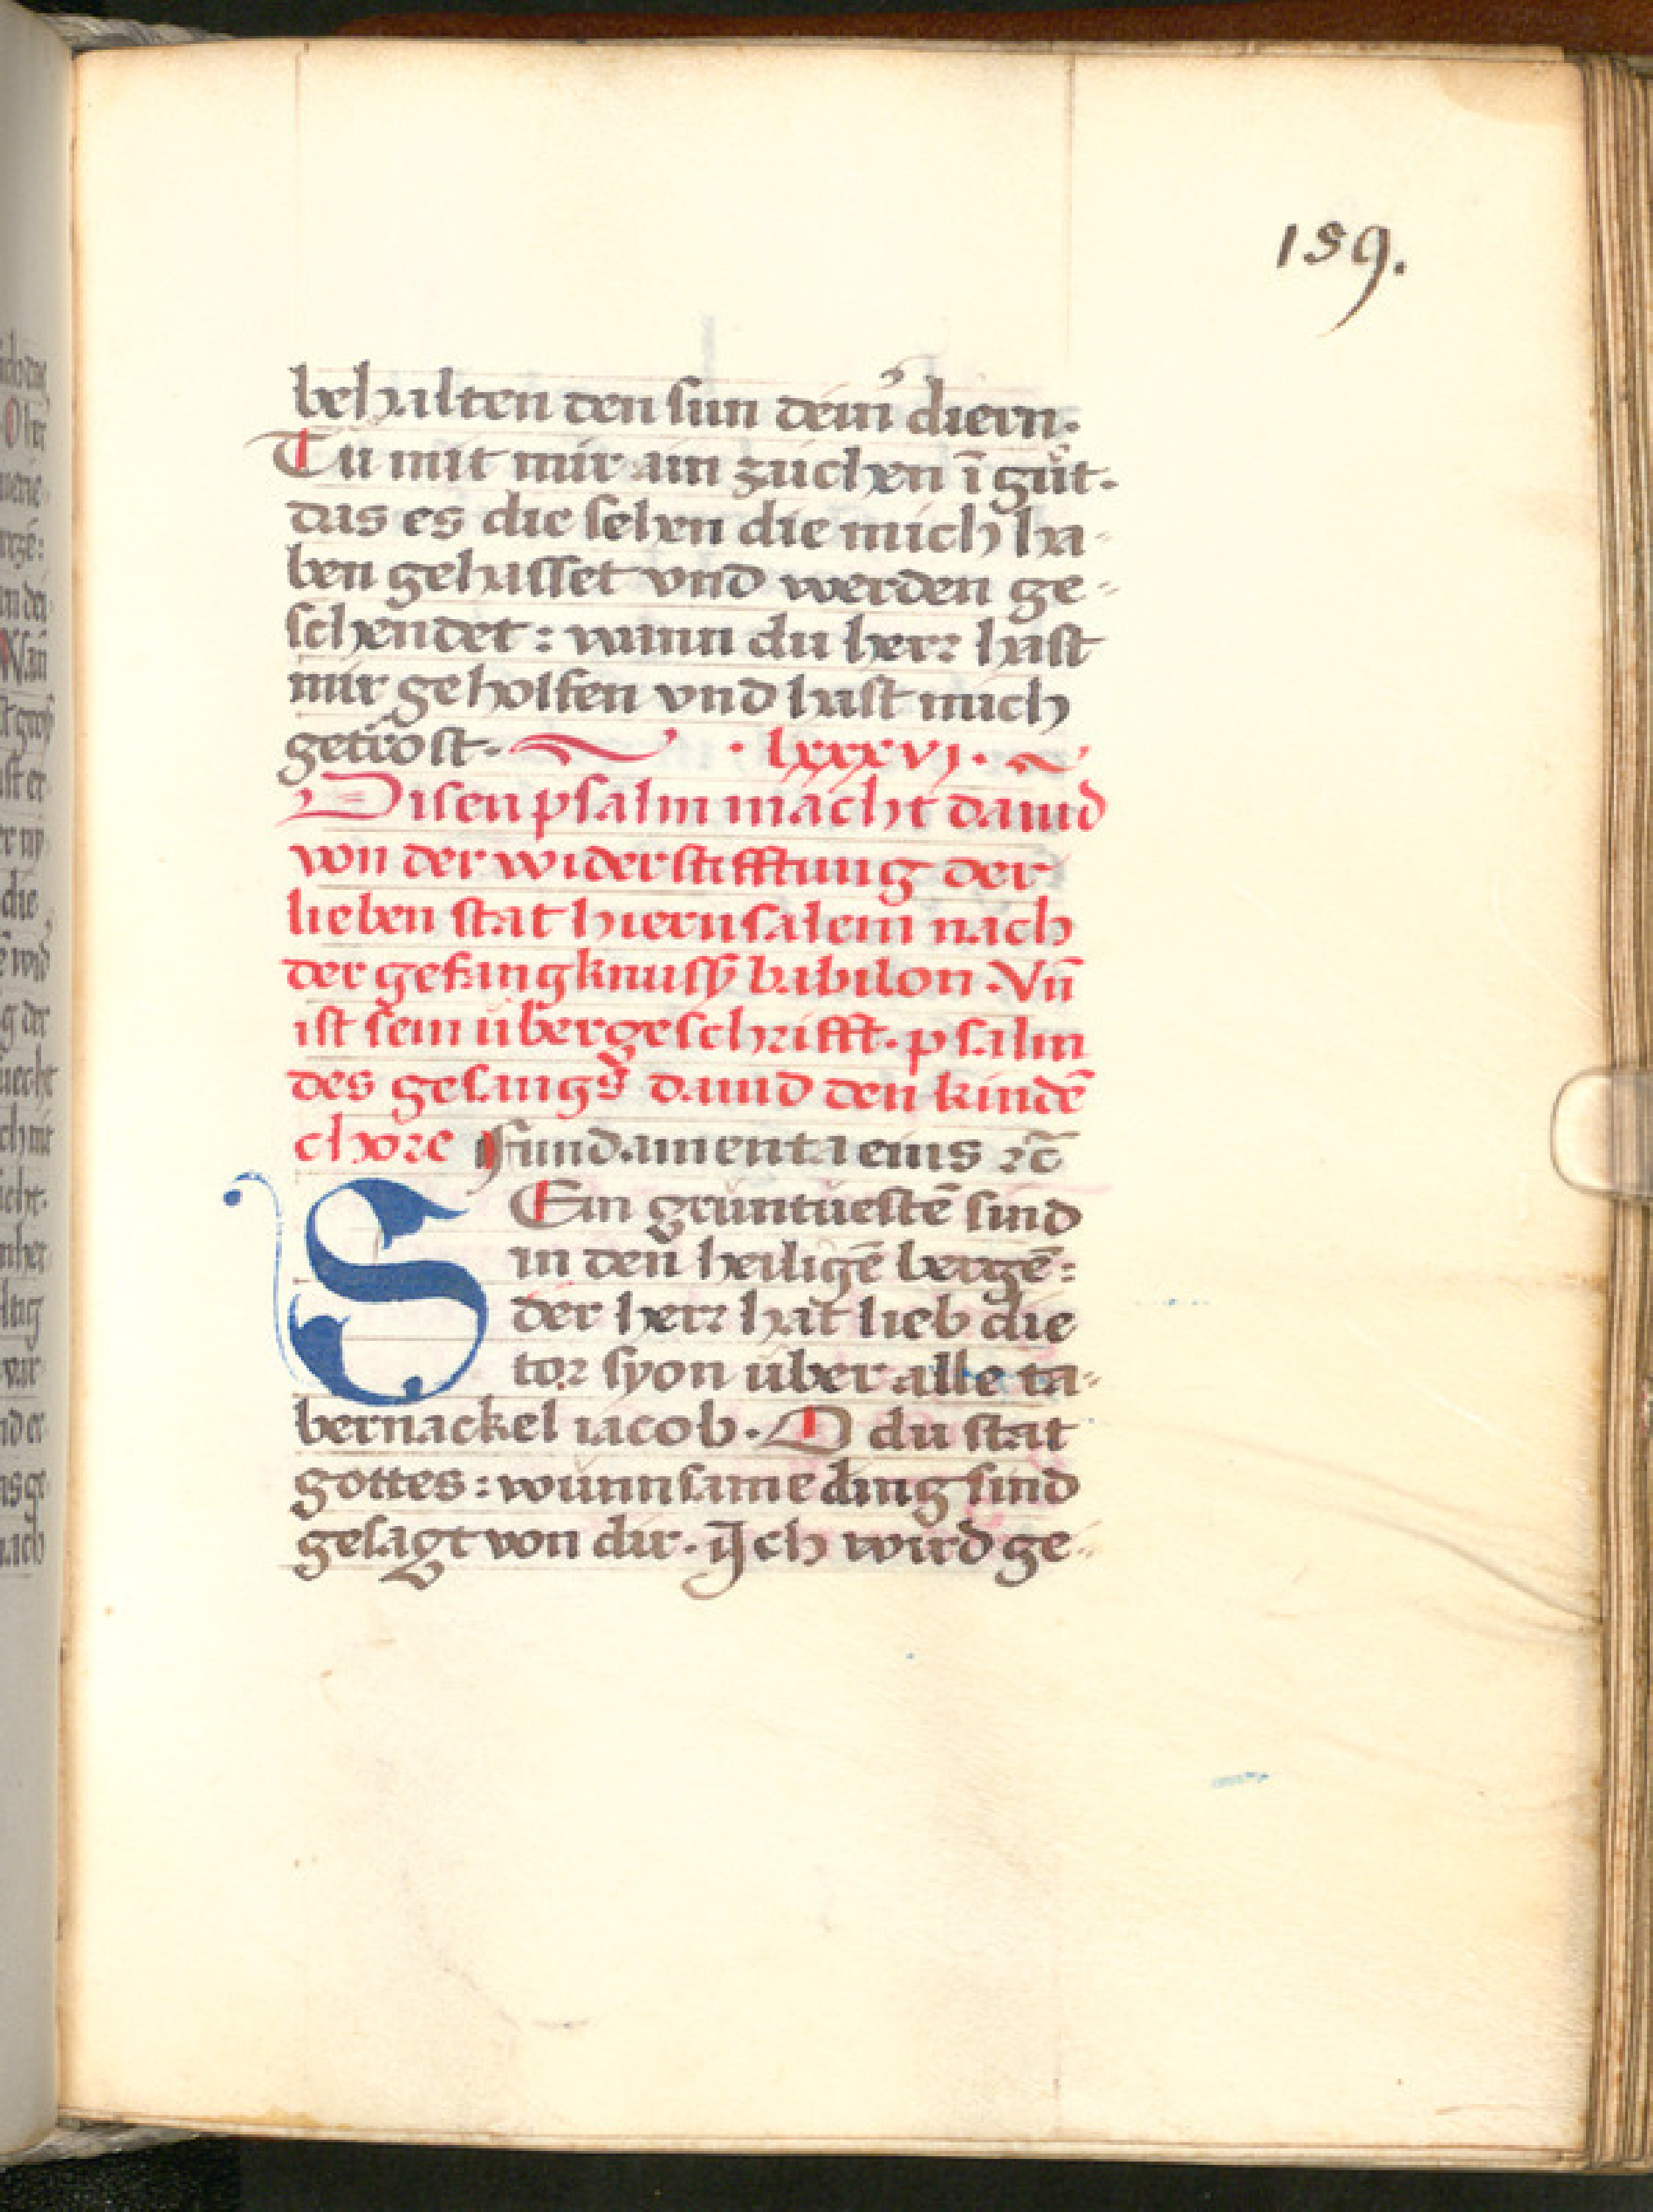 159.
behalten den sun deinˀ diern.
Tu mit mir ain zaichen ī gu̍t.
das es die sehen die mich ha-
ben gehasset vnd werden ge-
schendet: wann du herr hast
mir geholfen vnd hast mich
getröst. · lxxxvj ·
Disen psalm macht dauid
von der widerstifftung der
lieben stat hierusalem nach
der gefangknuss babilon. Vn̄
ist sein übergeschrifft. psalm
des gesangs dauid den kindē
chore fundamenta eius ꝛc̄
SEin gruntuestē sind
in den heiligē bergē:
der herr hat lieb die
tor syon über alle ta-
bernackel iacob. O du stat
gottes: wunnsame ding sind
gesagt von dir. Ich wird ge-